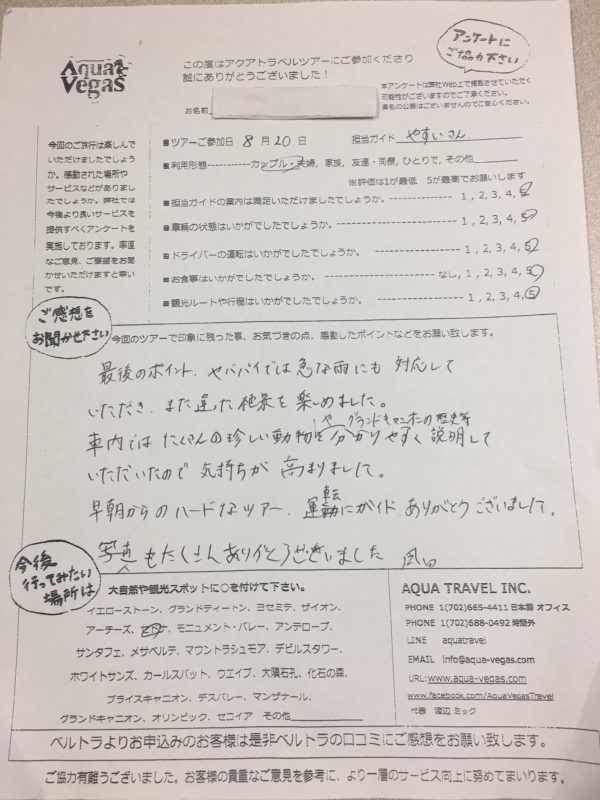 Aqua Vegas
この度はアクアトラベルツアーにご参加くださり
誠にありがとうございました!
アンケートに
ご協力下さい
本アンケートは弊社Web上で掲載させていただく
可能性がございますのでご了承ください。
実名の公表はございませんのでご安心ください。
お名前
今回のご旅行は楽しんで
いただけましたでしょう
か。感動された場所や
サービスなどがありまし
たでしょうか。弊社では
今後より良いサービスを
提供すべくアンケートを
実施しております。率直
なご意見、ご要望をお聞
かせいただけますと幸い
です。
■ツアーご参加日 8月20日 担当ガイド やすいさん
■利用形態------------カップル・夫婦, 家族, 友達・同僚, ひとりで, その他
※評価は1が最低 5が最高でお願いします
■担当ガイドの案内は満足いただけましたでしょうか。 1, 2, 3, 4, 5
■車輌の状態はいかがでしたでしょうか。 1, 2, 3, 4, 5
■ドライバーの運転はいかがでしたでしょうか。 1, 2, 3, 4, 5
■お食事はいかがでしたでしょうか。 なし, 1, 2, 3, 4, 5
■観光ルートや行程はいかがでしたでしょうか。 1, 2, 3, 4, 5
ご感想を
お聞かせ下さい
今回のツアーで印象に残った事、お気づきの点、感動したポイントなどをお願い致します。
最後のポイント、ヤバパイでは急な雨にも対応して
いただき、また違った絶景を楽しめました。
や グランドキャニオンの歴史等
車内ではたくさんの珍しい動物を分かりやすく説明して
いただいたので気持ちが高まりました。
早朝からのハードなツアー、運転にガイド、ありがとうございました。
写真もたくさんありがとうございました
今後
行ってみたい
場所は
大自然や観光スポットに○を付けて下さい。
イエローストーン、グランドティートン、ヨセミテ、ザイオン、
アーチーズ、セドナ、モニュメント・バレー、アンテロープ、
サンタフェ、メサベルテ、マウントラシュモア、デビルスタワー、
ホワイトサンズ、カールスバット、ウエイブ、大隕石孔、化石の森、
ブライスキャニオン、デスバレー、マンザナール、
グランドキャニオン、オリンピック、セコイア その他
AQUA TRAVEL INC.
PHONE 1(702)665-4411 日本語 オフィス
PHONE 1(702)688-0492 時間外
LINE aquatravel
EMAIL info@aqua-vegas.com
URL:www.aqua-vegas.com
www.facebook.com/AquaVegasTravel
代表 渡辺 ミック
ベルトラよりお申込みのお客様は是非ベルトラの口コミにご感想をお願い致します。
ご協力有難うございました。お客様の貴重なご意見を参考に、より一層のサービス向上に努めてまいります。